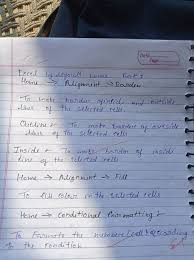 Date
Page
Excel
Home → Alignment → Border
To make border and outside
of the selected cells
Outline : To make border of outside
of the selected cells
Inside : To make border of inside
line of the selected cells
Home → Alignment → Fill
To fill colour in the selected cells
Home → Conditional Formatting :
To the numbers
the condition